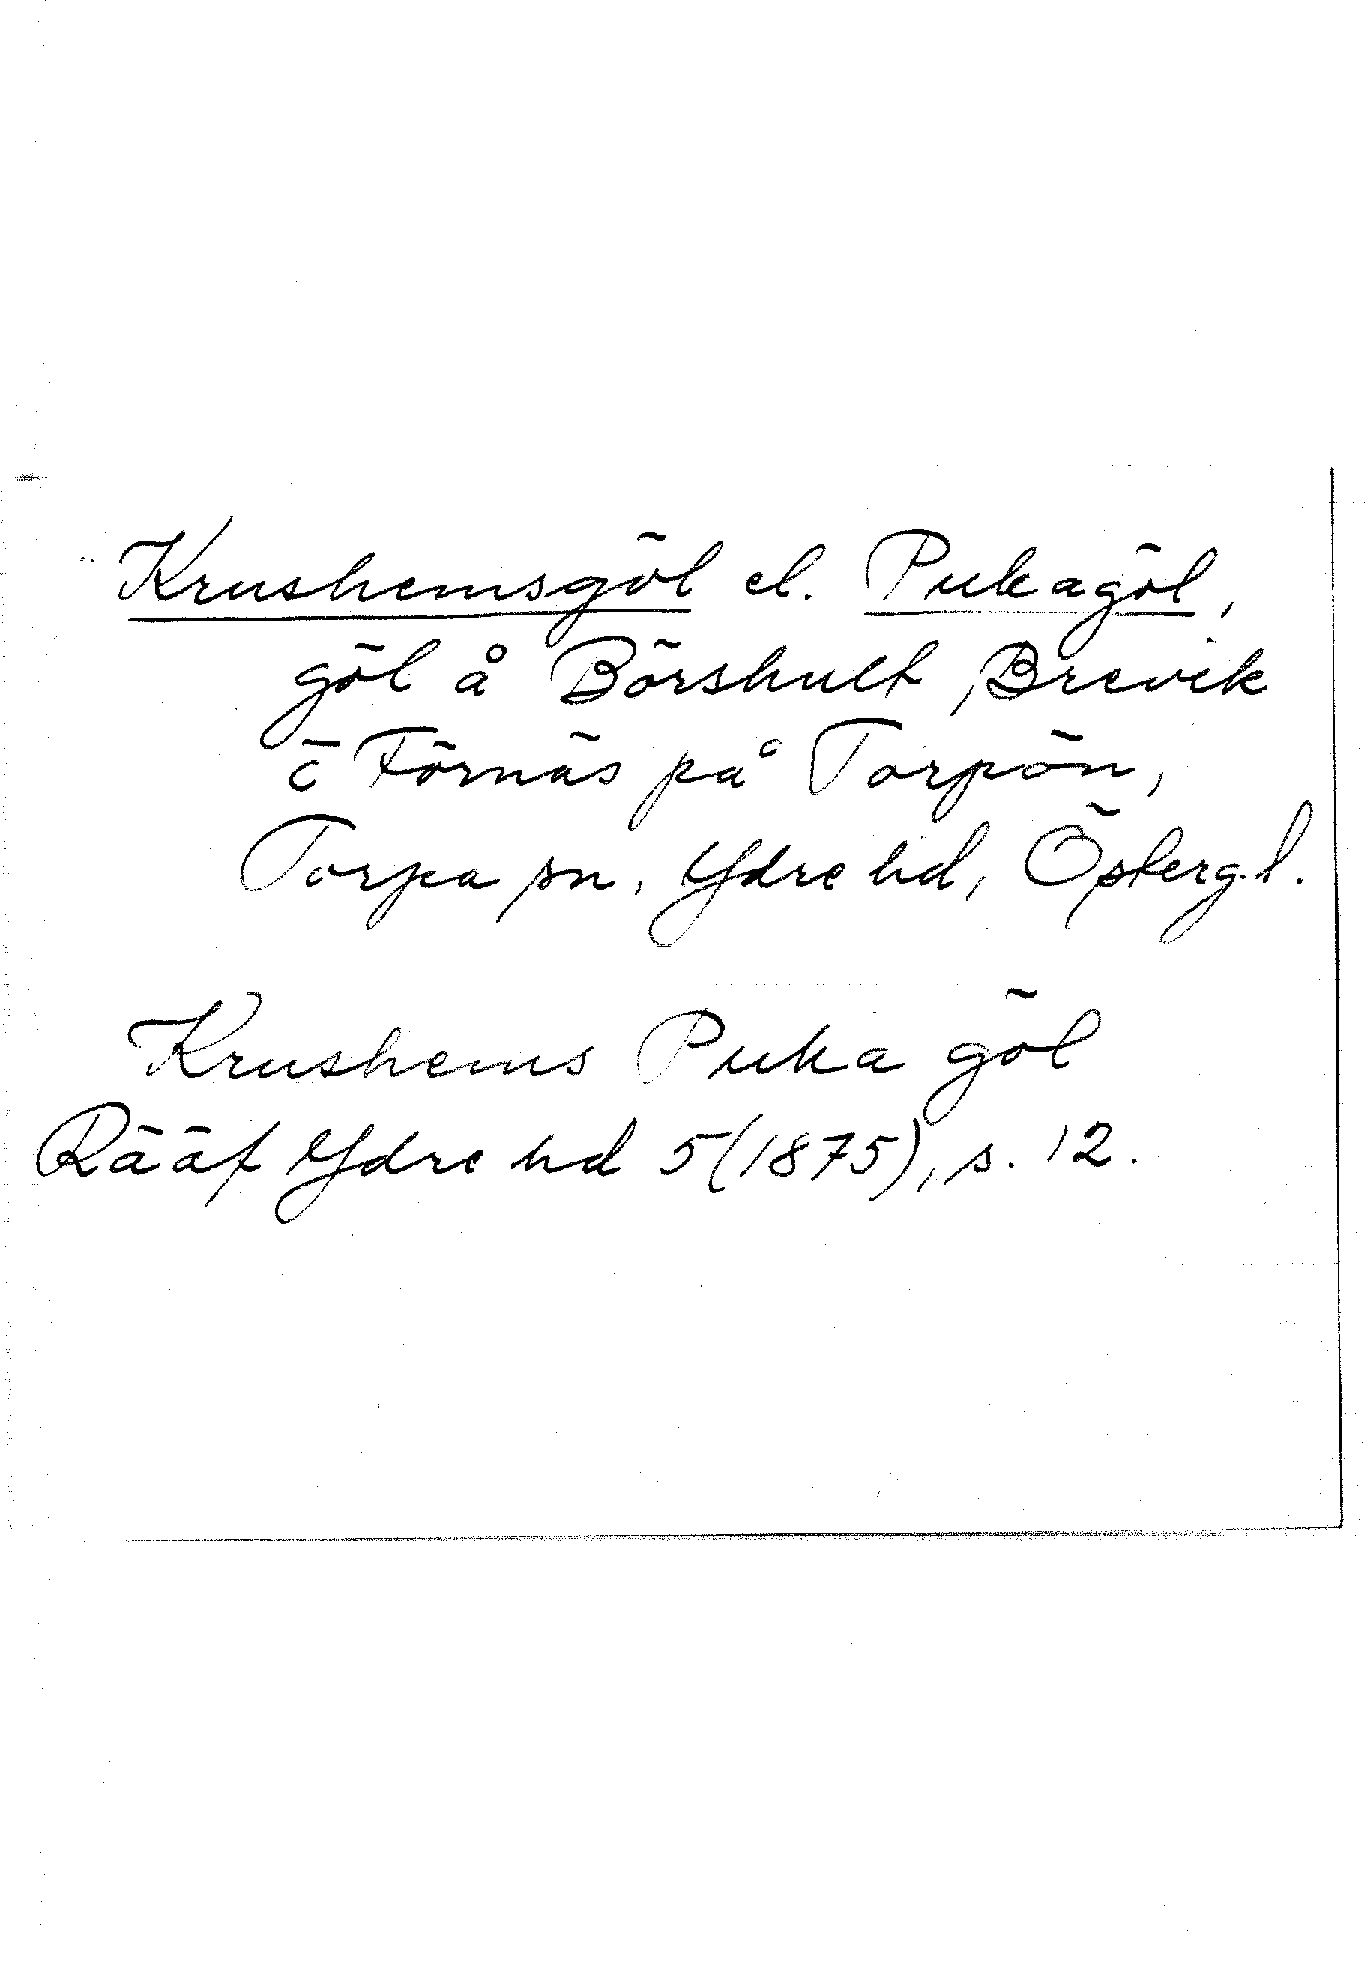 Krushemsgöl el. Pukagöl,
göl å Börshult, Brevik
o Förnäs på Torpön,
Torpa sn, Ydre hd, Östergl.
Krushems Puka göl
Rääf Ydre hd 5(1875), s. 12.